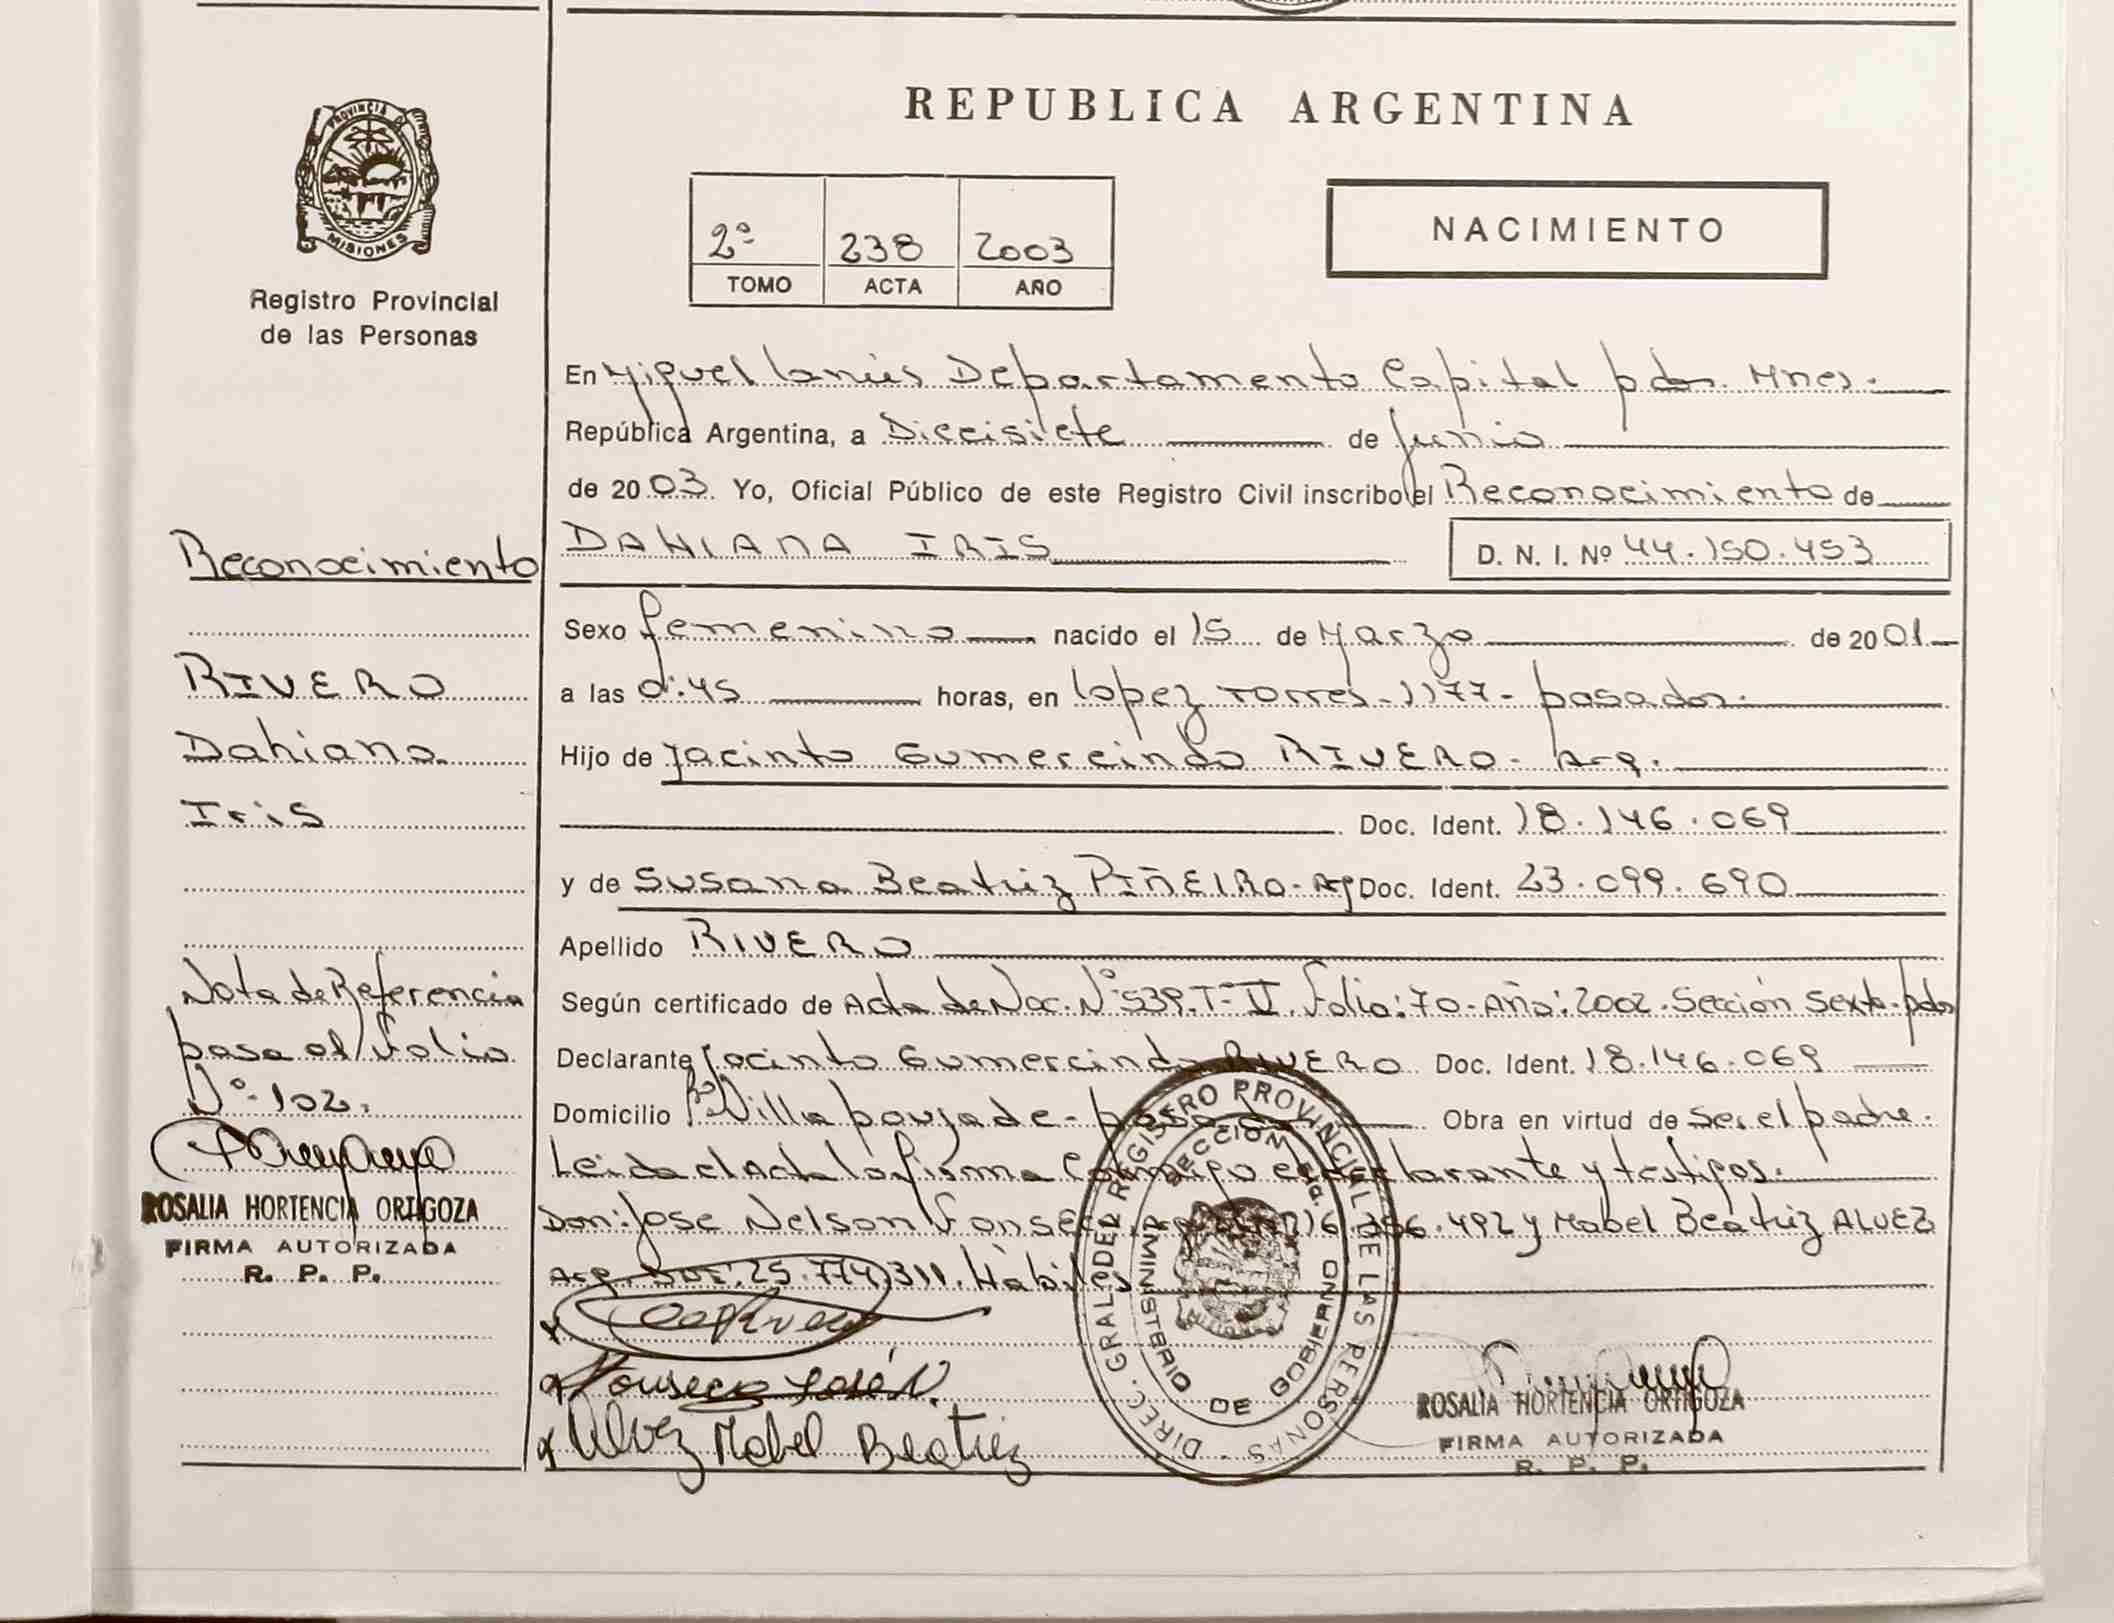 REPUBLICA ARGENTINA
PROVINCIA DE
MISIONES
Registro Provincial
de las Personas
2º 238 2003
TOMO ACTA AÑO
NACIMIENTO
En Miguel Lanús Departamento Capital pdas. Mnes.
República Argentina, a Diecisiete de Junio
de 2003. Yo, Oficial Público de este Registro Civil inscribo el Reconocimiento de
DAHIANA IRIS
D. N. I. Nº 44.150.453
Sexo femenino nacido el 15 de Marzo de 2001
a las 0:45 horas, en Lopez Torres-1177- posadas.
Hijo de Jacinto Gumercindo RIVERO- Arg.
Doc. Ident. 18.146.069
y de Susana Beatriz PIÑEIRO-Arg Doc. Ident. 23.099.690
Apellido RIVERO
Según certificado de Acta de Nac. Nº 539. T- II. Folio: 70- Año: 2002. Sección Sexta- pdas
Declarante Jacinto Gumercindo RIVERO Doc. Ident. 18.146.069
Domicilio Bº Villa poujade- posadas Obra en virtud de ser el padre.
Leída el Acta la firma Conmigo el declarante y testigos.
Don: Jose Nelson Fonseca 492 y Mabel Beatriz ALVEZ
Arg. DNI. 25.774.311. Hábiles
Fonseca José N.
Alvez Mabel Beatriz
Reconocimiento
RIVERO
Dahiana
Iris
Nota de Referencia
pasa al folio
Nº-102.
ROSALIA HORTENCIA ORTIGOZA
FIRMA AUTORIZADA
R. P. P.
DIREC. GRAL. DEL REGISTRO PROVINCIAL DE LAS PERSONAS -
SECCION
MINISTERIO DE GOBIERNO
ROSALIA HORTENCIA ORTIGOZA
FIRMA AUTORIZADA
R. P. P.